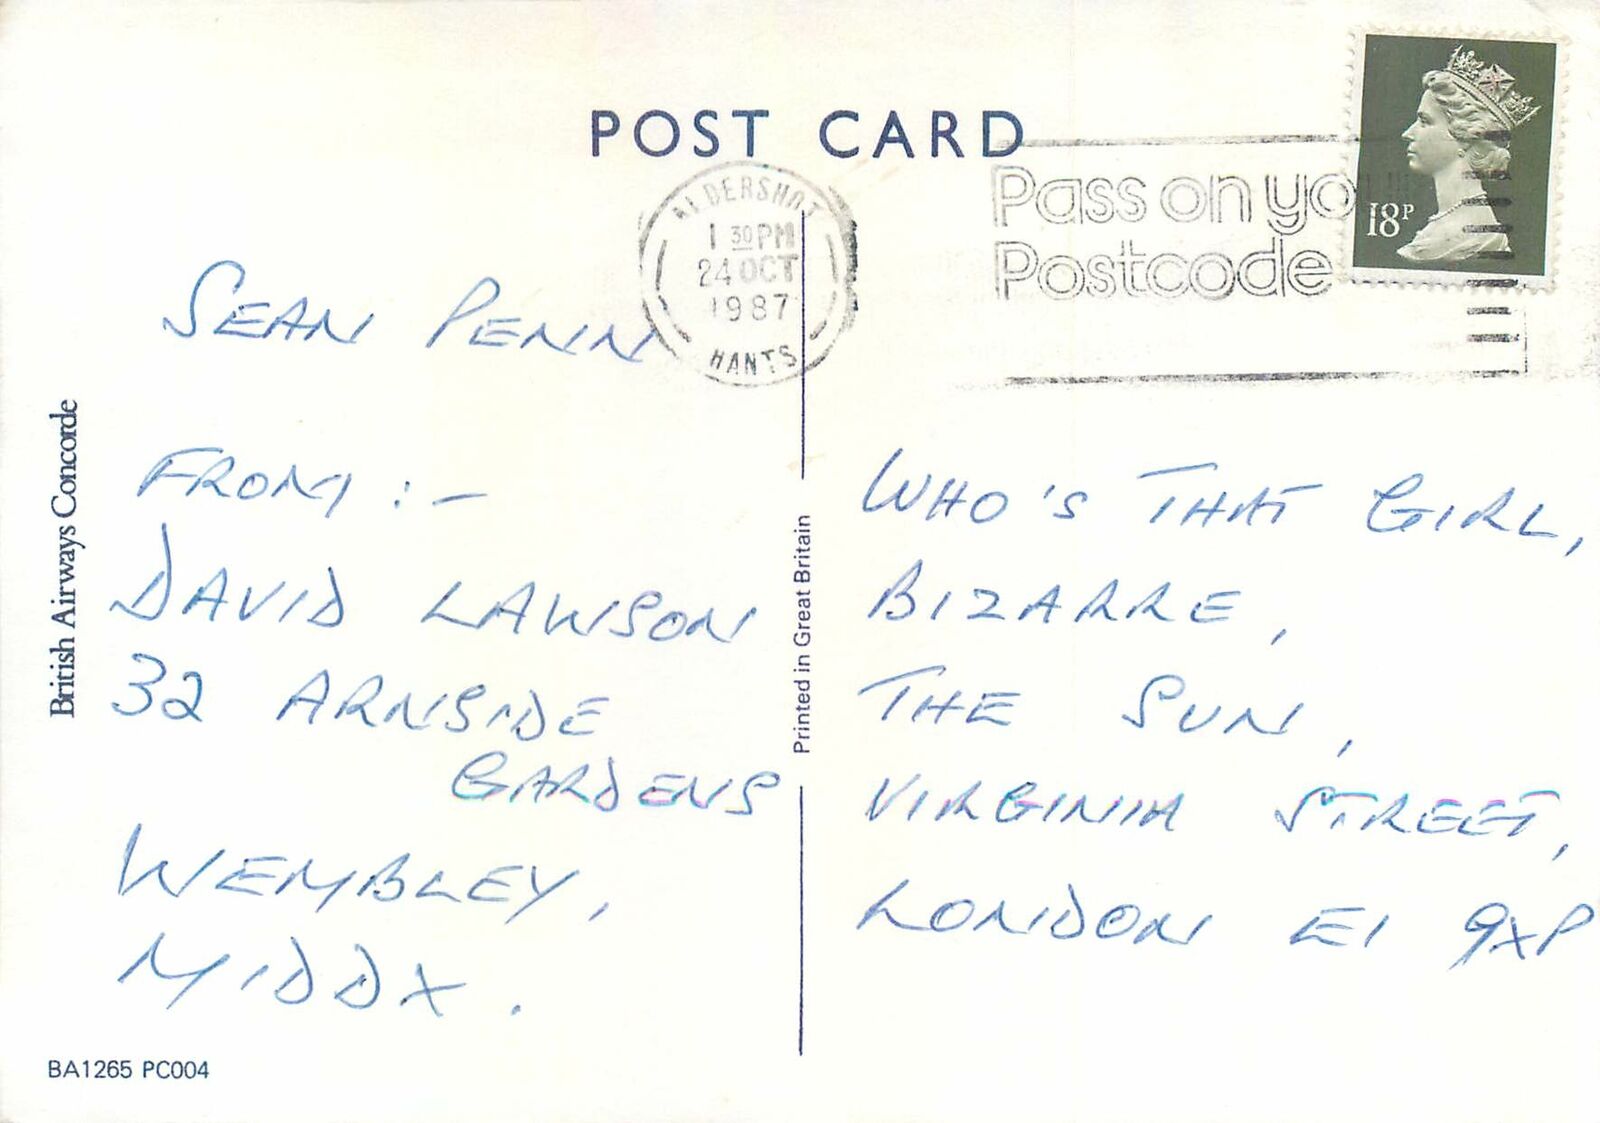 POST CARD
ALDERSHOT
1 30 PM
24 OCT
1987
HANTS
Pass on yo
Postcode
18P
SEAN PENN
FROM :-
DAVID LAWSON
32 ARNSIDE
GARDENS
WEMBLEY,
MIDDX.
British Airways Concorde
BA1265 PC004
Printed in Great Britain
WHO'S THAT GIRL,
BIZARRE,
THE SUN,
VIRGINIA STREET,
LONDON E1 9XP